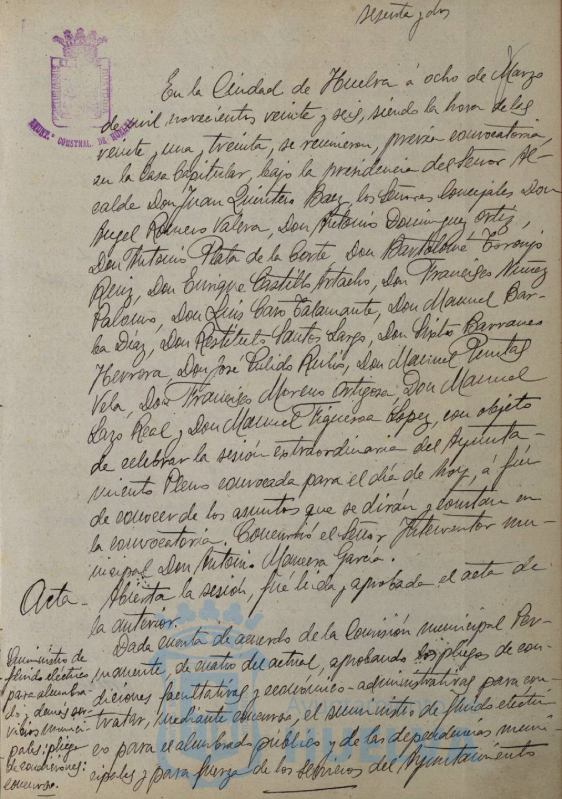 sesenta y dos
AYUNT.º CONSTNAL. DE HUELVA
En la Ciudad de Huelva á ocho de Marzo
de mil novecientos veinte y seis, siendo la hora de las
veinte y una y treinta, se reunieron, previa convocatoria,
en la Casa Capitular, bajo la presidencia del Señor Al-
calde Don Juan Quintero Baez, los Señores Concejales Don
Angel Romero Valera, Don Antonio Dominguez Ortiz,
Don Antonio Plata de la Corte, Don Bartolomé Toronjo
Ruiz, Don Enrique Castillo Artacho, Don Francisco Nuñez
Palomo, Don Luis Caro Talamante, Don Manuel Bar-
ba Díaz, Don Restituto Santos Largo, Don Sixto Barranco
Herrera, Don José Pulido Rubio, Don Manuel
Vela, Don Francisco Moreno Ortigosa, Don Manuel
Lazo Real y Don Manuel Figueroa López, con objeto
de celebrar la sesión extraordinaria del Ayunta-
miento Pleno convocada para el día de hoy, á fin
de conocer de los asuntos que se dirán y constan en
la convocatoria. Concurrió el Señor Interventor mu-
nicipal Don Antonio García.
Acta - Abierta la sesión, fué leida y aprobada el acta de
la anterior.
Suministro de
fluido eléctrico
para alumbra-
do y demás ser-
vicios munici-
pales: pliego
de condiciones:
concurso.
Dada cuenta de acuerdo de la Comisión municipal Per-
manente, de cuatro del actual, aprobando los pliegos de con-
diciones facultativas y económico-administrativas para con-
tratar, mediante concurso, el suministro de fluido eléctri-
co para el alumbrado público y de las dependencias muni-
cipales y para fuerza de los servicios del Ayuntamiento